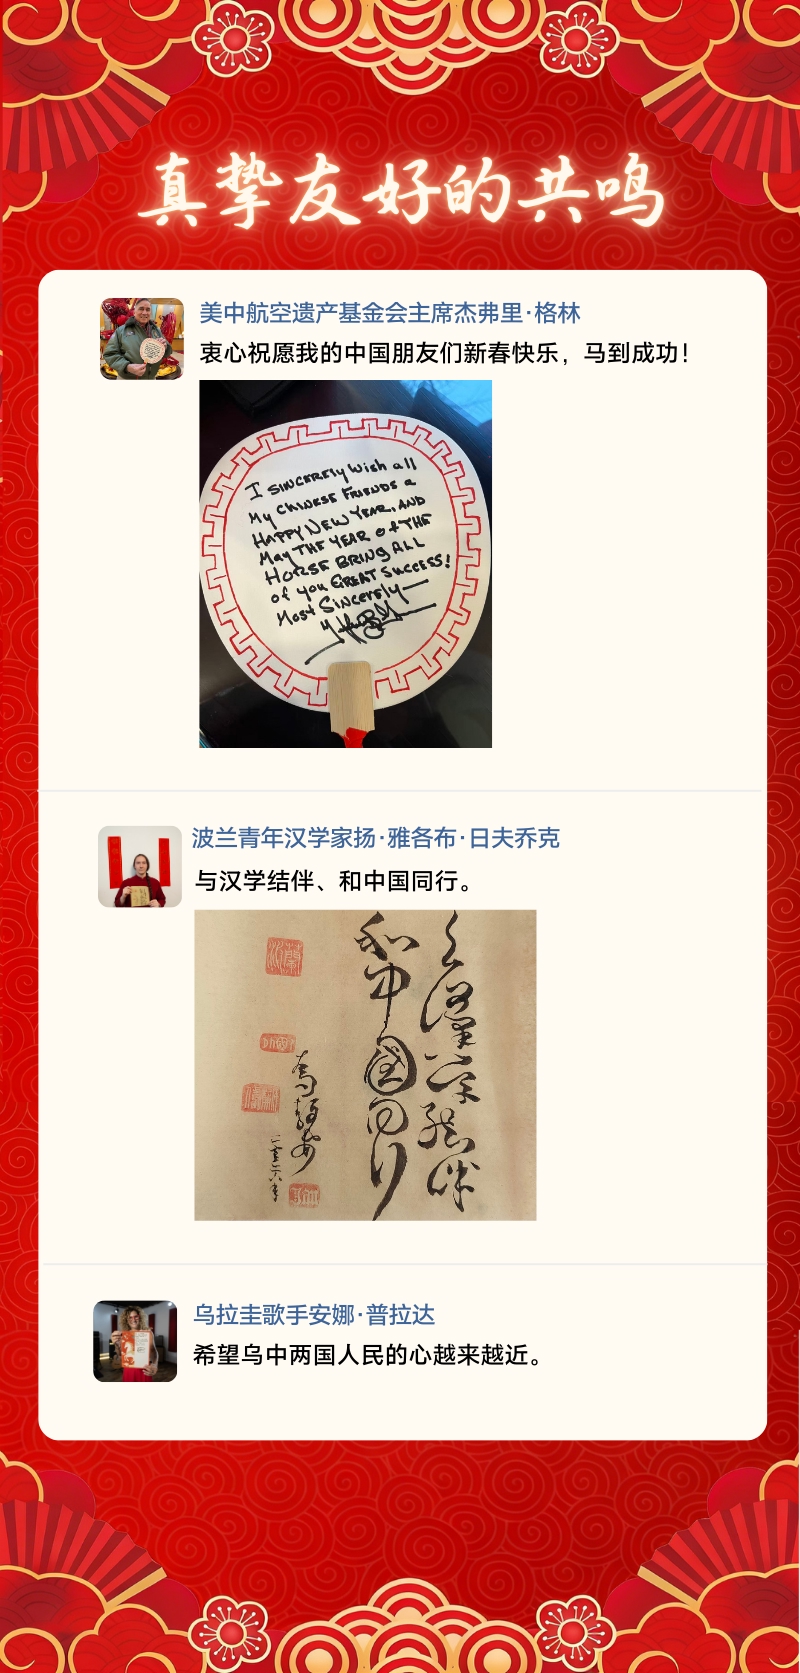 真挚友好的共鸣
美中航空遗产基金会主席杰弗里·格林
衷心祝愿我的中国朋友们新春快乐，马到成功！
I SINCERELY Wish all
My CHINESE FRIENDS a
HAPPY NEW YEAR, AND
May THE YEAR of THE
HORSE BRING ALL
of you GREAT SUCCESS!
Most Sincerely
波兰青年汉学家扬·雅各布·日夫乔克
与汉学结伴、和中国同行。
与漢学结伴
和中國同行
乌拉圭歌手安娜·普拉达
希望乌中两国人民的心越来越近。